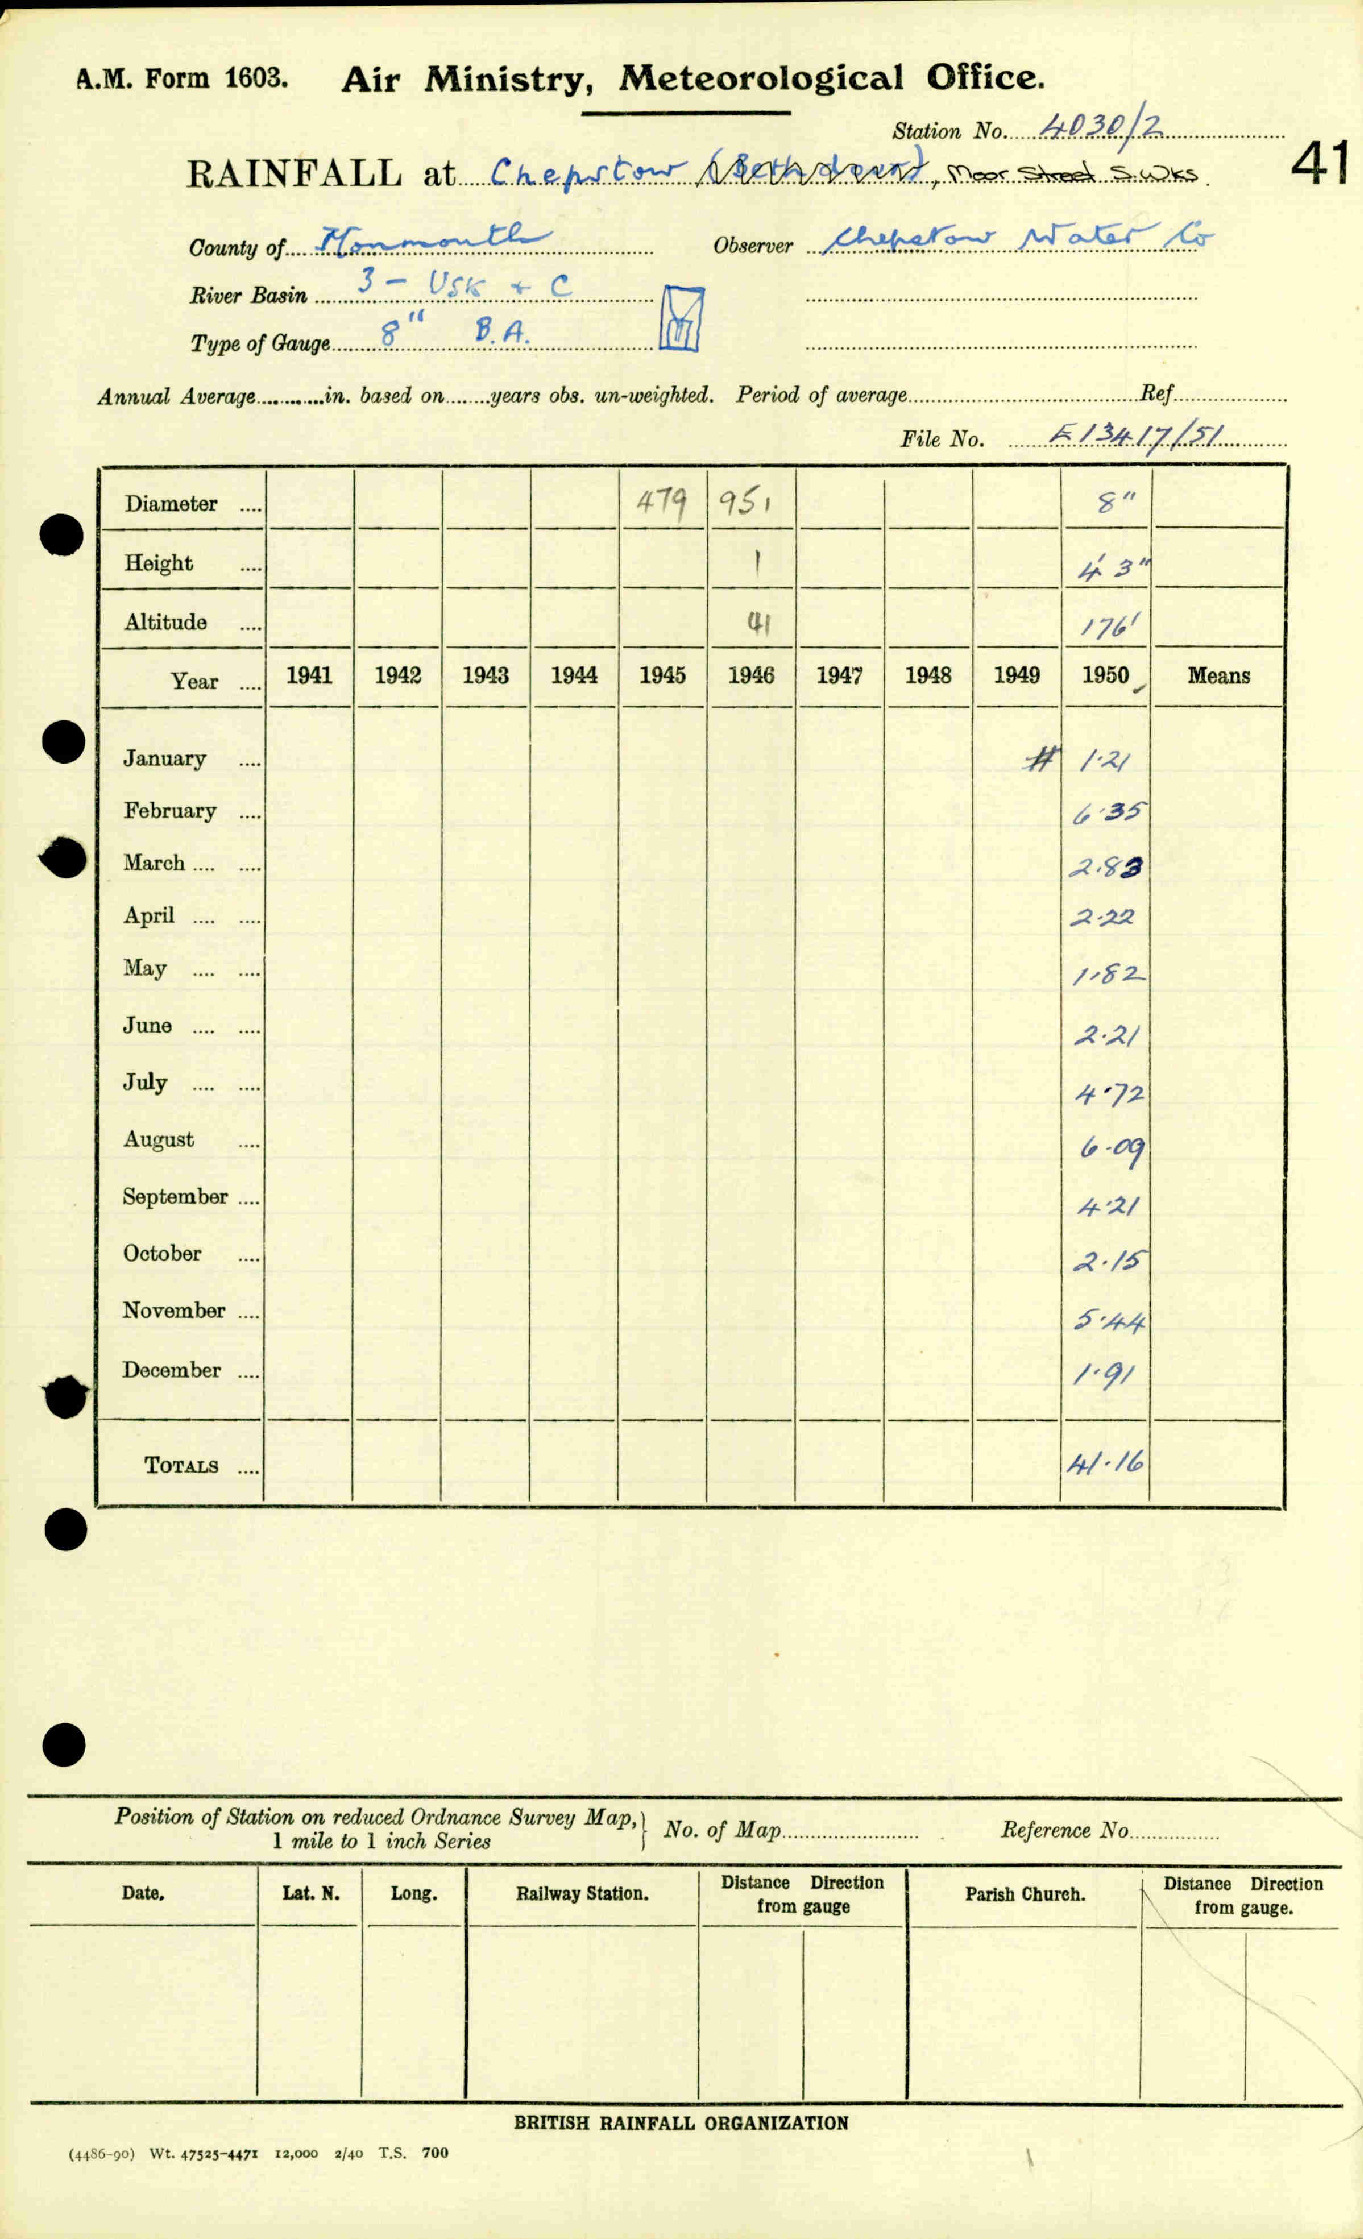 A.M. Form 1603. Air Ministry, Meteorological Office.
Station No. 4030/2
41
RAINFALL at Chepstow, Moor Street S.Wks.
County of Monmouth Observer Chepstow Water Co
River Basin 3 - USK + C
Type of Gauge 8" B.A.
Annual Average in. based on years obs. un-weighted. Period of average Ref
File No. E13417/51
Diameter 479 951 8"
Height 1 4' 3"
Altitude 41 176'
Year 1941 1942 1943 1944 1945 1946 1947 1948 1949 1950 Means
January # 1.21
February 6.35
March 2.83
April 2.22
May 1.82
June 2.21
July 4.72
August 6.09
September 4.21
October 2.15
November 5.44
December 1.91
TOTALS 41.16
Position of Station on reduced Ordnance Survey Map, 1 mile to 1 inch Series No. of Map Reference No.
Date. Lat. N. Long. Railway Station. Distance Direction from gauge Parish Church. Distance Direction from gauge.
BRITISH RAINFALL ORGANIZATION
(4486-90) Wt. 47525-4471 12,000 2/40 T.S. 700